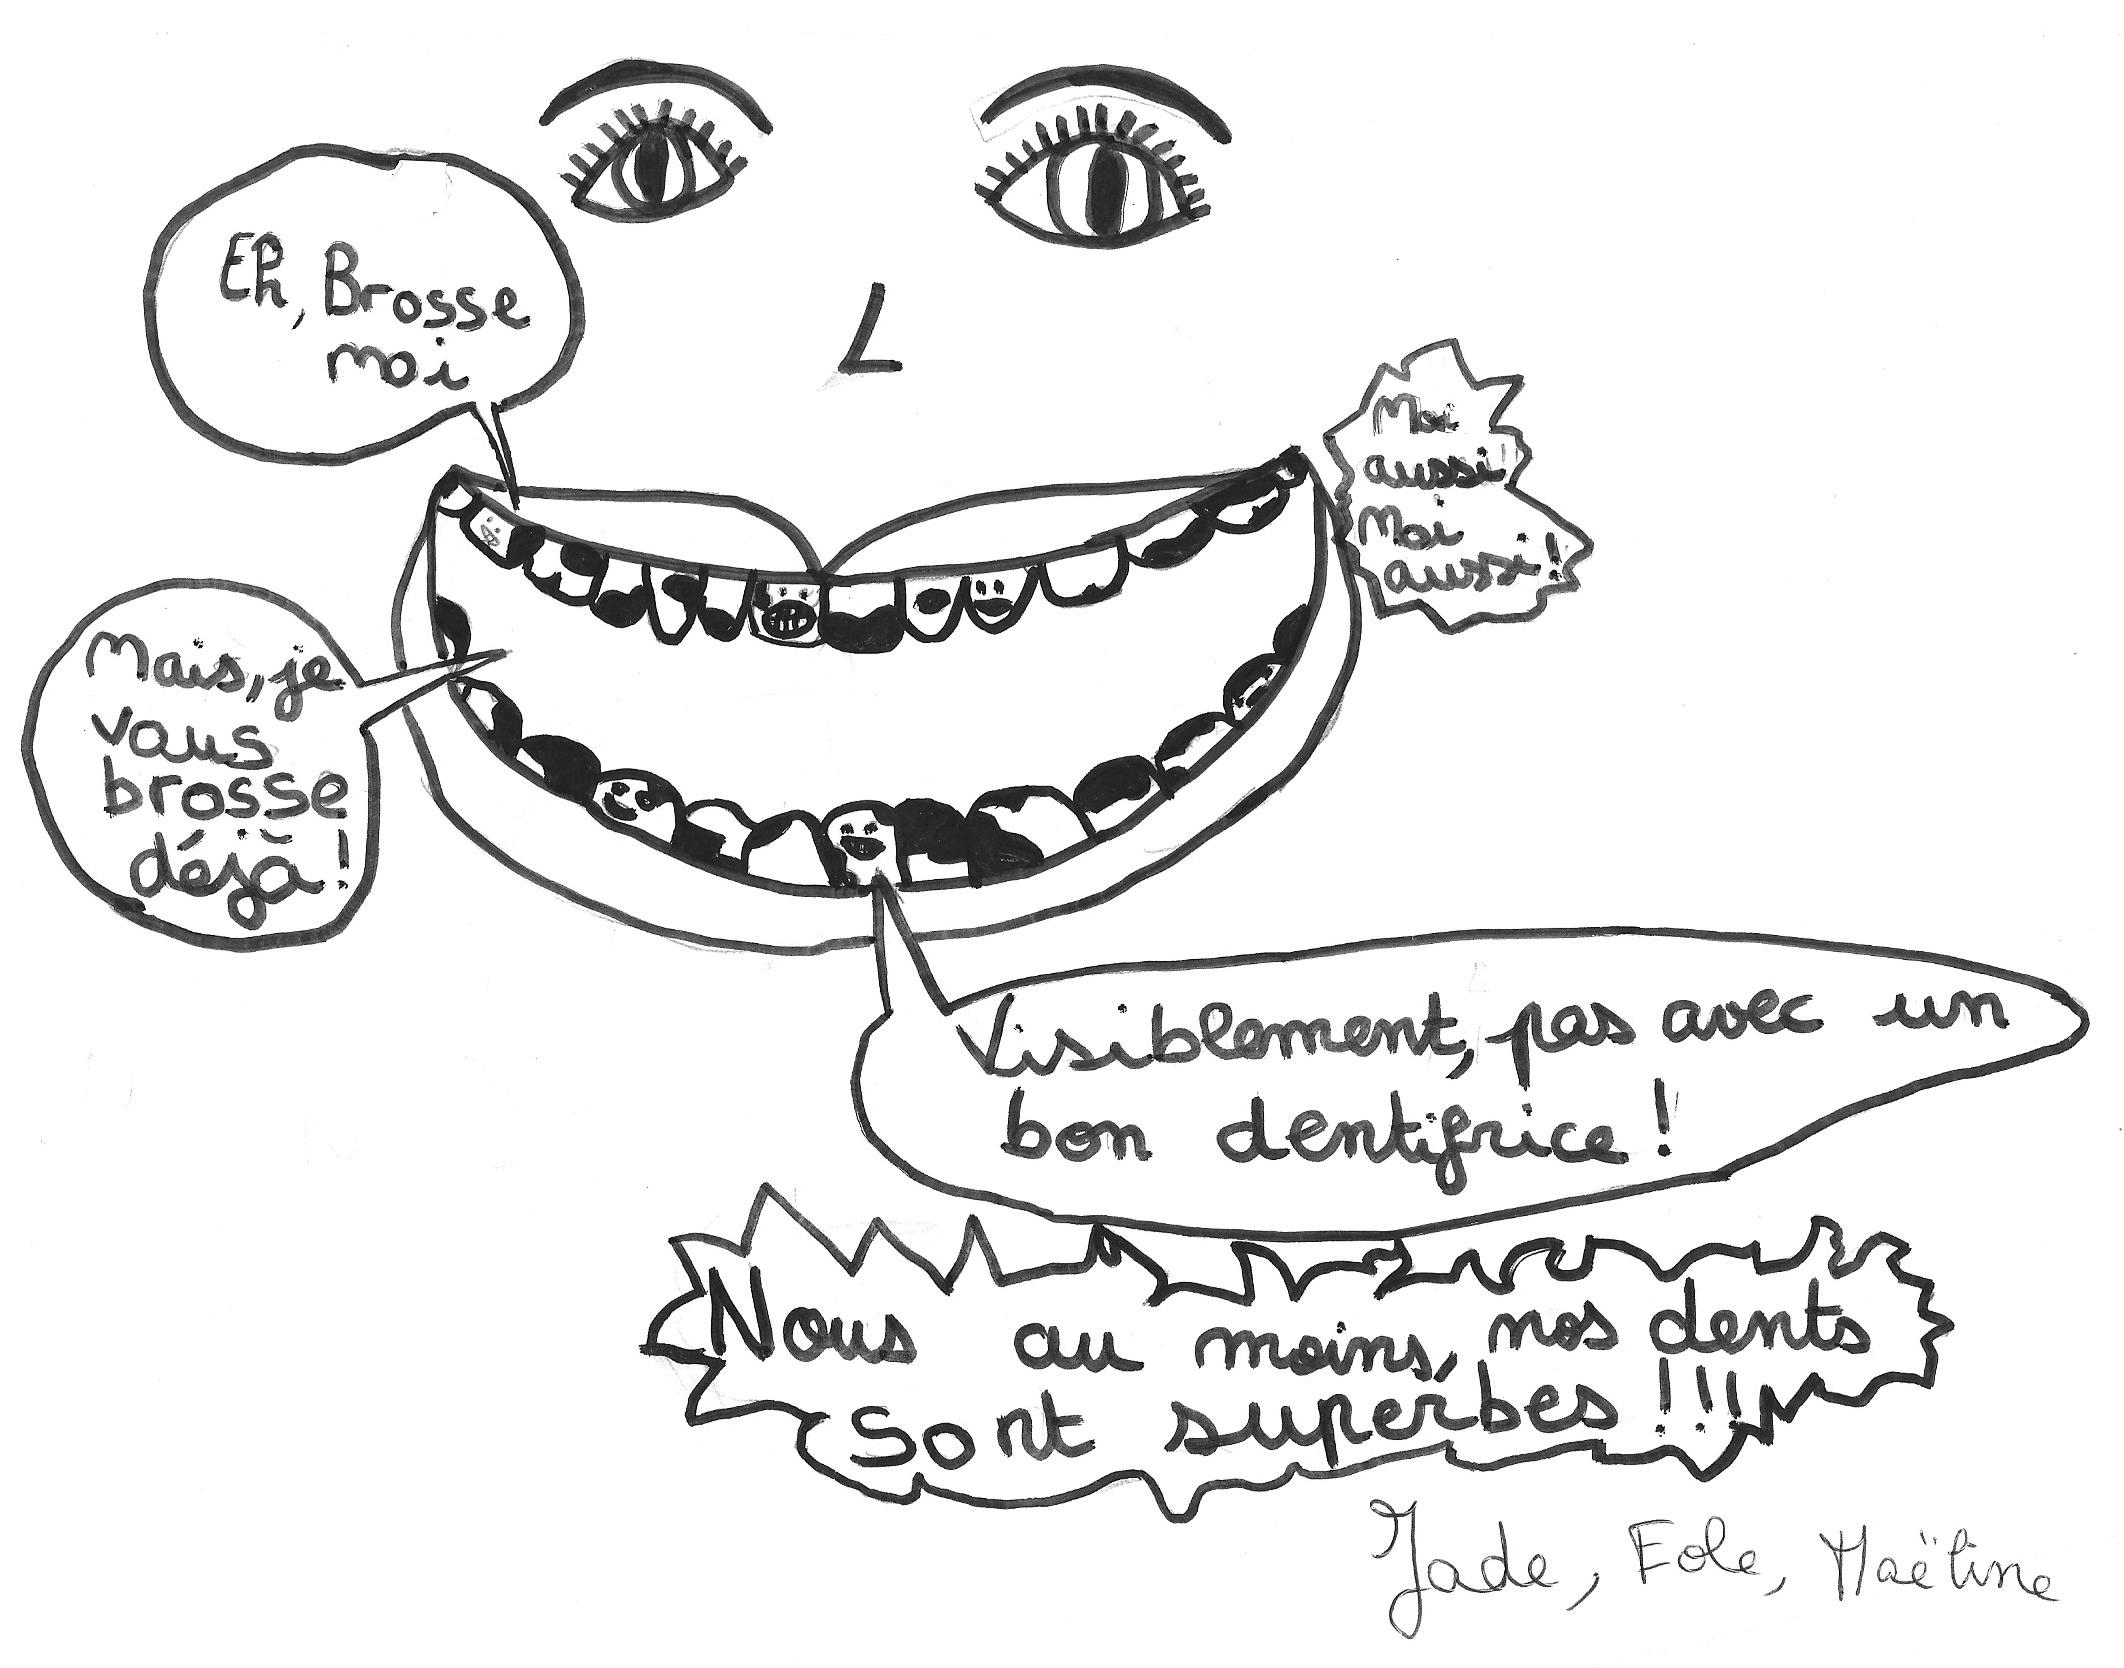 Eh, Brosse
moi
Moi
aussi!
Moi
aussi!
Mais, je
vous
brosse
déjà!
Visiblement, pas avec un
bon dentifrice!
Nous au moins, nos dents
sont superbes!!!
Jade, Eole, Maëline